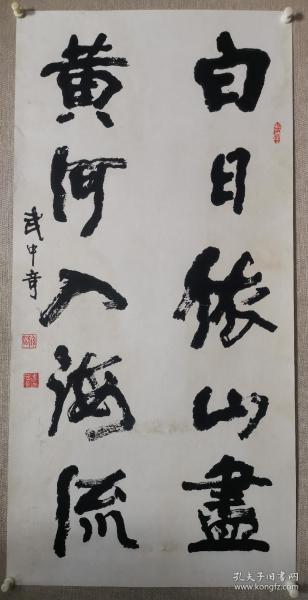 白日依山盡
黄河入海流
武中奇
孔夫子旧书网
www.kongfz.com